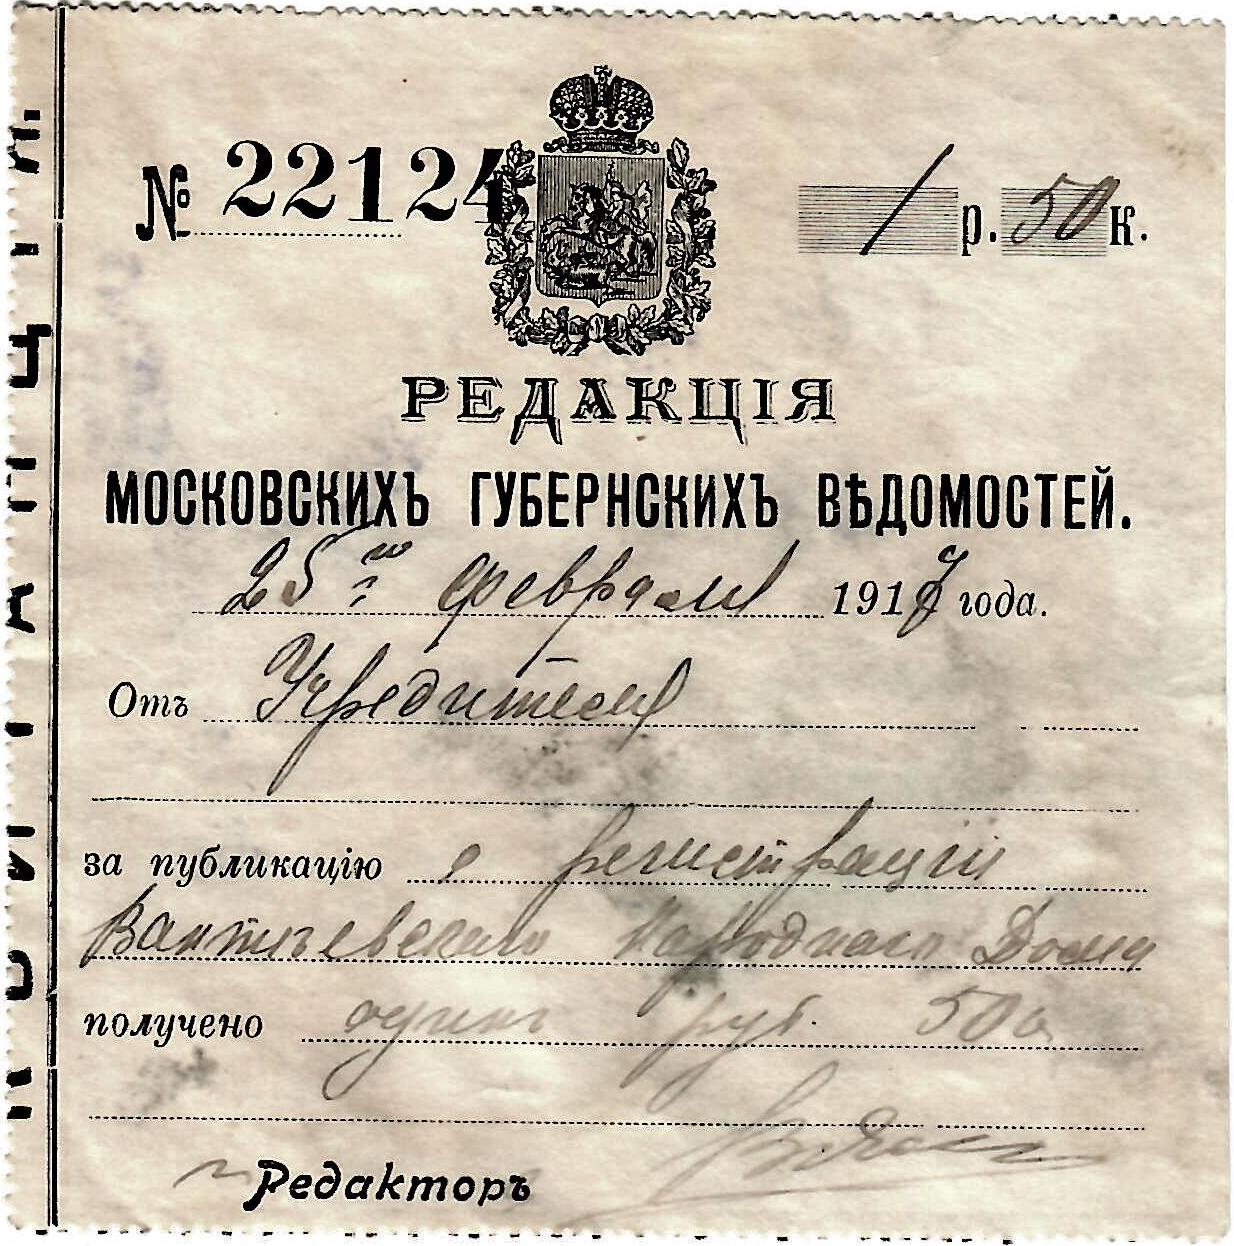 № 22124
1 р. 50 к.
РЕДАКЦІЯ
МОСКОВСКИХЪ ГУБЕРНСКИХЪ ВѢДОМОСТЕЙ.
25го февраля 1917 года.
Отъ Учредителя
за публикацію о регистраціи
Народнаго Дома
получено одинъ руб. 50 к.
Редакторъ